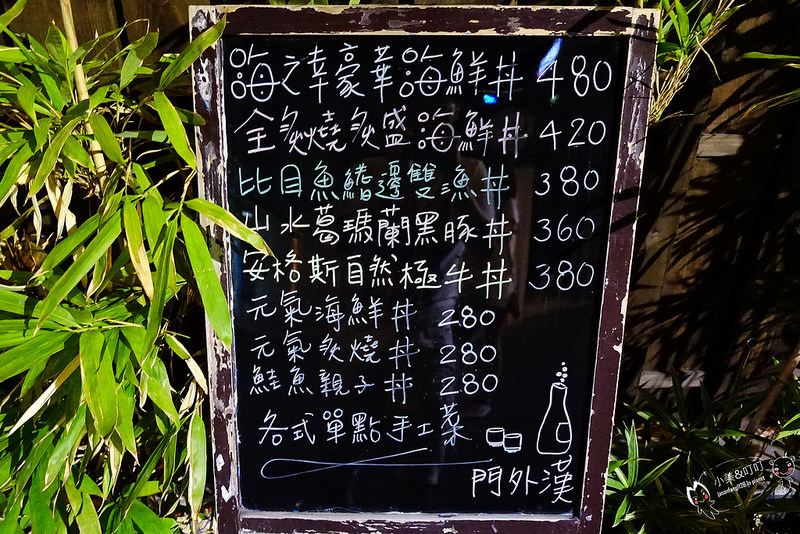 海之幸豪華海鮮丼 480
全炙燒炙盛海鮮丼 420
比目魚鰭邊雙漁丼 380
山水葛瑪蘭黑豚丼 360
安格斯自然極牛丼 380
元氣海鮮丼 280
元氣炙燒丼 280
鮭魚親子丼 280
各式單點手工菜
門外漢
小美&叮叮